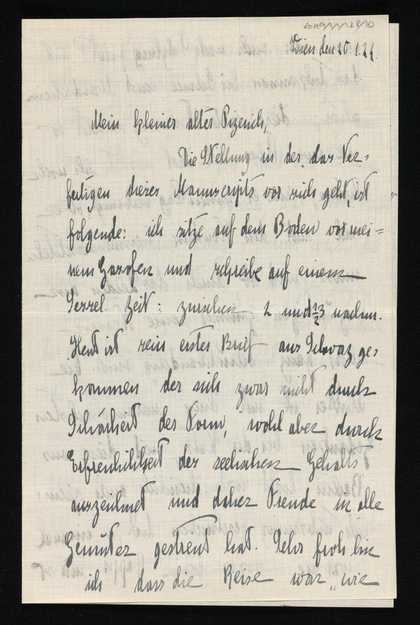 Wien den 20.1.21.
Mein kleines altes
Die Stellung in der das Ver-
fertigen dieses Manuscripts vor sich geht ist
folgende: ich sitze auf dem Boden vor mei-
nem Gasofen und schreibe auf einem
Sessel Zeit: zwischen 2 und ½3 nachm.
Heut ist sein erster Brief aus ge-
kommen der sich zwar nicht durch
Schönheit der Form, wohl aber durch
Erfreulichkeit des seelischen Gehalts
auszeichnet und daher Freude in alle
Gemüter gestreut hat. Sehr froh bin
ich dass die Reise war „wie